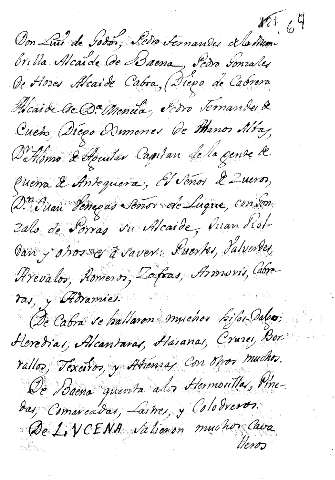 64
Don Luis de Godoi; Pedro Fernandes de la Mem-
brilla Alcaide de Baena, Pedro Gonzales
de Hozes Alcaide Cabra, Diego de Cabrera
Alcaide de Da. Mencia, Pedro Fernandes de
Cueto, Diego Ximenes de Manos Alvas,
Dn. Alonso de Aguilar Capitan de la gente de
guerra de Antequera; El Señor de Zueros,
Dn. Juan Venegas Señor de Luque, con Gon-
zalo de Porras su Alcaide; Juan Roldan
y otros es á saver: Puertes, Valverdes,
Arevalos, Romeros, Zafras, Armoris,
y Adramies.
De Cabra se hallaron muchos hijos Dalgo:
Heredias, Alcantaras, Haianas, Cruzes, Bor-
rallos, Texeiros, y Atienzas con otros muchos.
De Baena quenta a los Hermosillas, Pine-
das, Comercadas, Lastres, y Colodreros.
De LVCENA salieron muchos Cava
lleros